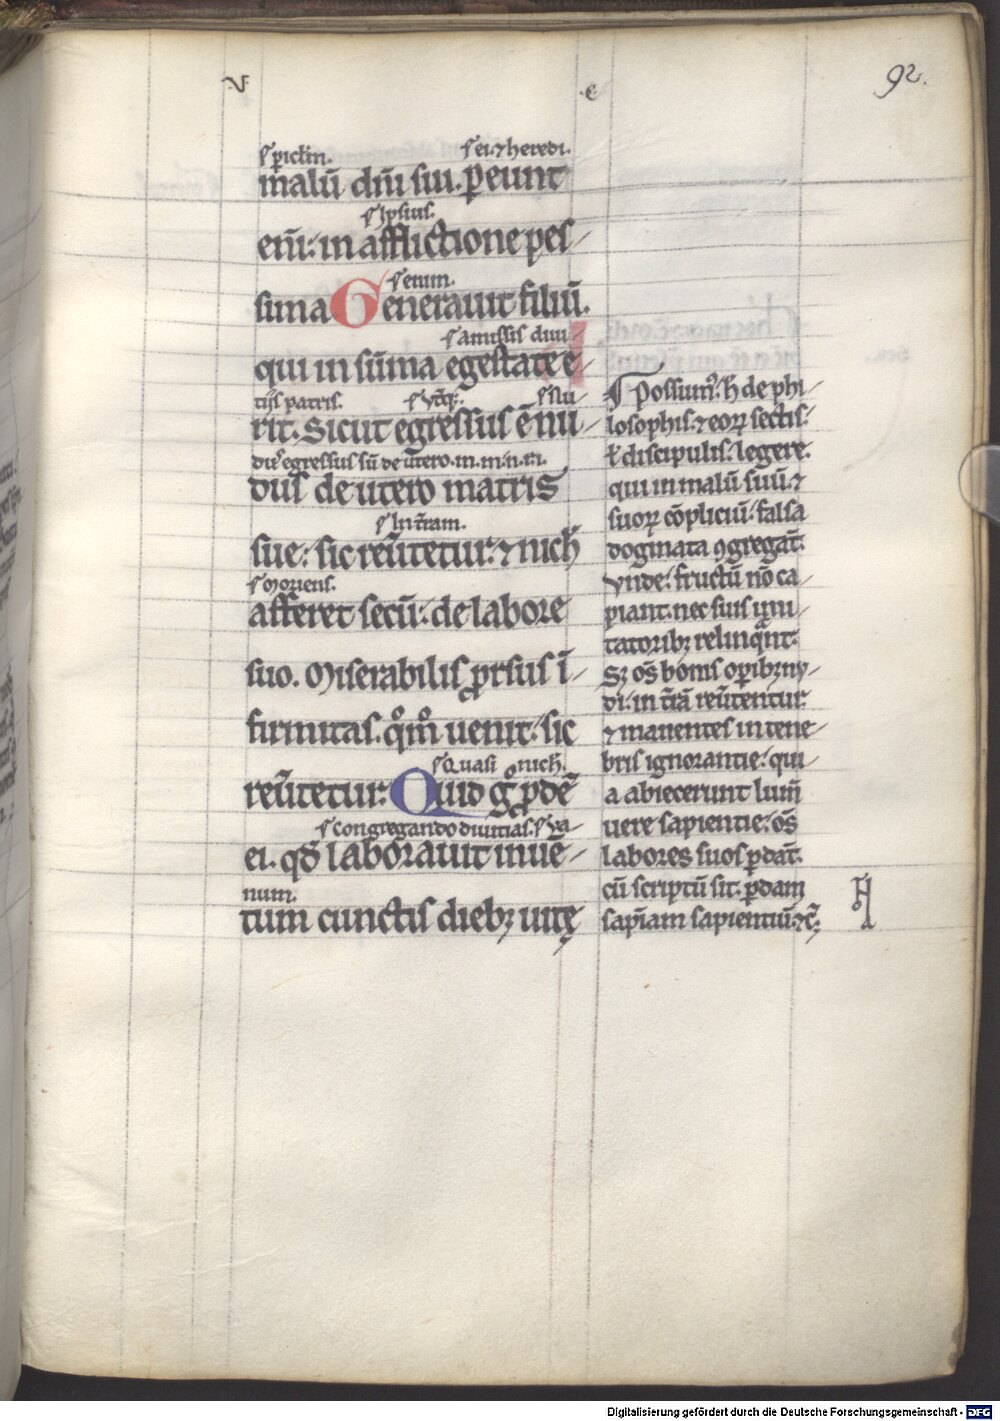 .V. .C. 92.
s. ei. ⁊ heredi.
malū dn̄i sui. ꝑeunt
s. ipsius.
eni᷑: in afflictione pes/
s. enim.
sima Generauit filiū.
s. amissis diui/
qui in sūma egestate e/
tijs patris.
rit. Sicut egressus ē nu/
dus de utero matris
s. In t̄ram.
sue: sic reu̅tetur. ⁊ nich̄
s. Moriens.
afferet secū: de labore
suo. Miserabilis ꝓrsus ī/
firmitas. qͦm uenit: sic
s. Quasi nich̄.
reu̅tetur. Quid gͦ ꝓdē
s. congregando diuitias. s. ua/
ei. qđ laborauit in uē/
num.
tum cunctis dieb; uitę
¶ Possum᷒. h̄ de phi/
losophis. ⁊ eoꝝ sectis.
ł discipulis. legere.
qui in malū suū. ⁊
suoꝝ cōpliciū: falsa
dogmata ꝯgregāt.
Vnde: fructū nō ca/
piant. nec suis imi/
tatorib; relinqūnt.
Sꝫ om̄s bonis oꝑib; nu/
di: in t̄rā reu̅tentur.
⁊ manentes in tene/
bris ignorantie: qui
a abiecerunt lum̄
uere sapientie: om̄s
labores suos ꝑdāt.
cū scriptū sit. ꝑdam
sapīam sapientiū. ⁊c̄.
Digitalisierung gefördert durch die Deutsche Forschungsgemeinschaft - DFG